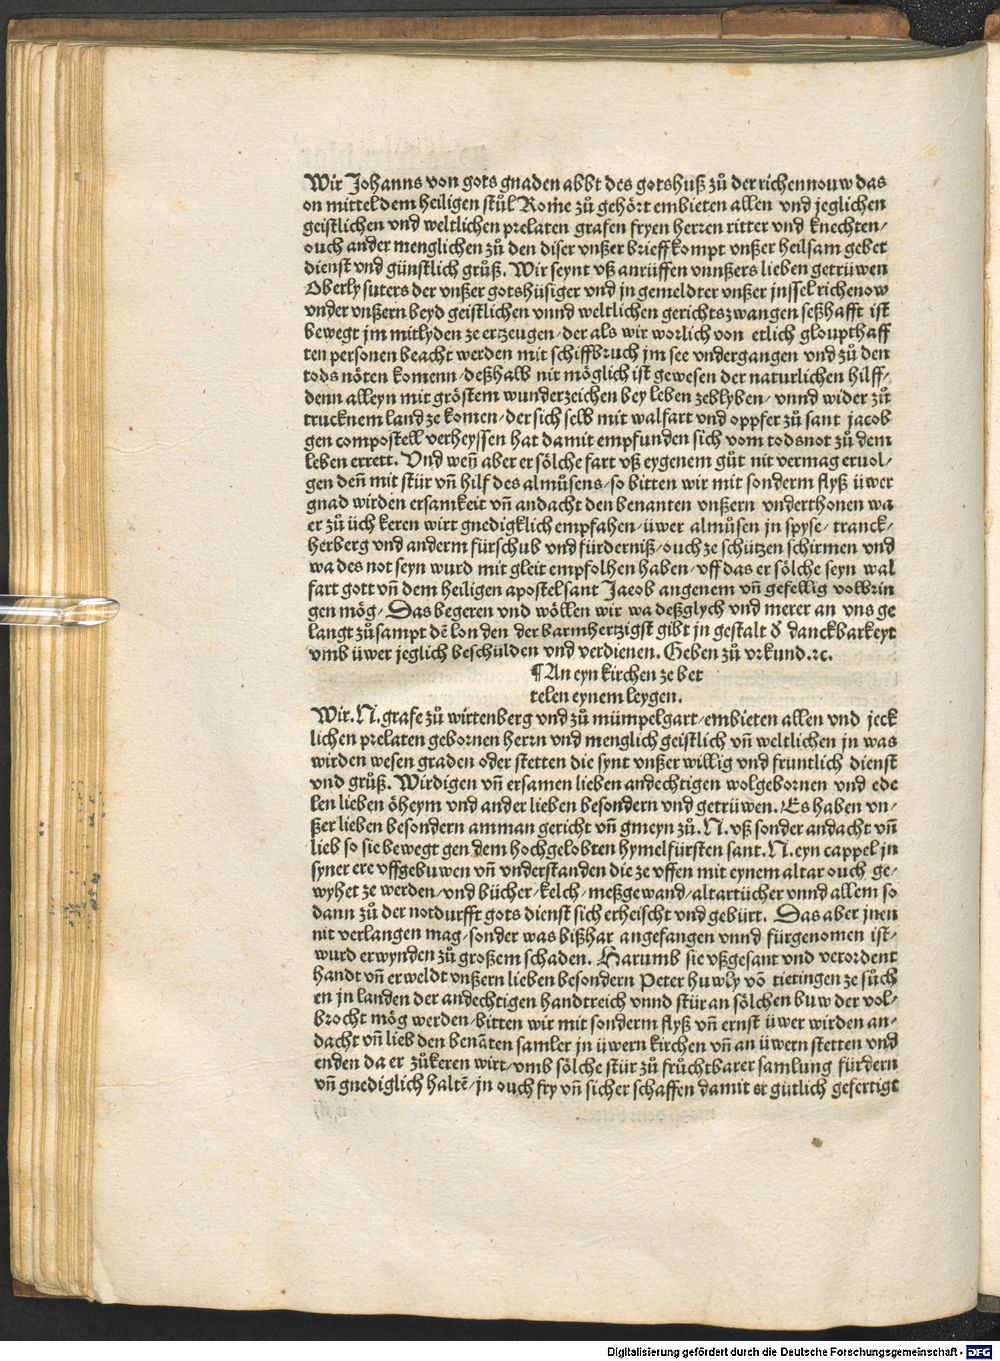 Wir Johanns von gots gnaden abbt des gotshuß zů der richennouw das
on mittel dem heiligen stůl Rome zů gehört embieten allen vnd jeglichen
geistlichen vnd weltlichen prelaten grafen fryen herren ritter vnd knechten/
ouch ander menglichen zů den diser vnßer brieff kompt vnßer heilsam gebet
dienst vnd günstlich grůß. Wir seynt vß anrüffen vnnßers lieben getrüwen
Oberly suters der vnßer gotshüsiger vnd jn gemeldter vnßer jnssel richenow
vnder vnßern beyd geistlichen vnnd weltlichen gerichtszwangen seßhafft ist
bewegt jm mitlyden ze ertzeugen/der als wir worlich von etlich gloupthaff
ten personen beacht werden mit schiffbruch jm see vndergangen vnd zů den
tods nöten komenn/deßhalb nit möglich ist gewesen der naturlichen hilff/
denn alleyn mit gröstem wunderzeichen bey leben zeblyben/ vnnd wider zů
trucknem land ze komen/der sich selb mit walfart vnd oppfer zů sant jacob
gen compostell verheyssen hat damit empfunden sich vom todsnot zů dem
leben errett. Vnd weñ aber er sölche fart vß eygenem gůt nit vermag eruol/
gen deñ mit stür vñ hilf des almůsens/so bitten wir mit sonderm flyß üwer
gnad wirden ersamkeit vñ andacht den benanten vnßern vnderthonen wa
er zů üch keren wirt gnedigklich empfahen/üwer almůsen jn spyse/ tranck/
herberg vnd anderm fürschub vnd fürderniß/ouch ze schützen schirmen vnd
wa des not seyn wurd mit gleit empfolhen haben/vff das er sölche seyn wal
fart gott vñ dem heiligen apostel sant Jacob angenem vñ gefellig volbrin
gen mög/ Das begeren vnd wöllen wir wa deßglych vnd merer an vns ge
langt zůsampt dē lon den der barmhertzigst gibt jn gestalt ď danckbarkeyt
vmb üwer jeglich beschulden vnd verdienen. Geben zů vrkund.ꝛc.
¶An eyn kirchen ze bet
telen eynem leygen.
Wir.N.grafe zů wirtenberg vnd zů mümpelgart/embieten allen vnd jeck
lichen prelaten gebornen herrn vnd menglich geistlich vñ weltlichen jn was
wirden wesen graden oder stetten die synt vnßer willig vnd fruntlich dienst
vnd grůß. Wirdigen vñ ersamen lieben andechtigen wolgebornen vnd ede
len lieben öheym vnd ander lieben besondern vnd getrüwen. Es haben vn/
ßer lieben besondern amman gericht vñ gmeyn zů.N.vß sonder andacht vñ
lieb so sie bewegt gen dem hochgelobten hymelfürsten sant.N.eyn cappel jn
syner ere vffgebuwen vñ vnderstanden die ze vffen mit eynem altar ouch ge/
wyhet ze werden/vnd bücher/kelch/meßgewand/altartücher vnnd allem so
dann zů der notdurfft gots dienst sich erheischt vnd gebürt. Das aber jnen
nit verlangen mag/sonder was bißhar angefangen vnnd fürgenomen ist/
wurd erwynden zů großem schaden. Harumb sie vßgesant vnd verordent
handt vñ erweldt vnßern lieben besondern Peter huwly võ tietingen ze sůch
en jn landen der andechtigen handtreich vnnd stür an sölchen buw der vol/
brocht mög werden/bitten wir mit sonderm flyß vñ ernst üwer wirden an/
dacht vñ lieb den benãten samler jn üwern kirchen vñ an üwern stetten vnd
enden da er zůkeren wirt/vmb sölche stür zů frůchtbarer samlung fürdern
vñ gnediglich haltē/jn ouch fry vñ sicher schaffen damit er gütlich gefertigt
Digitalisierung gefördert durch die Deutsche Forschungsgemeinschaft - DFG